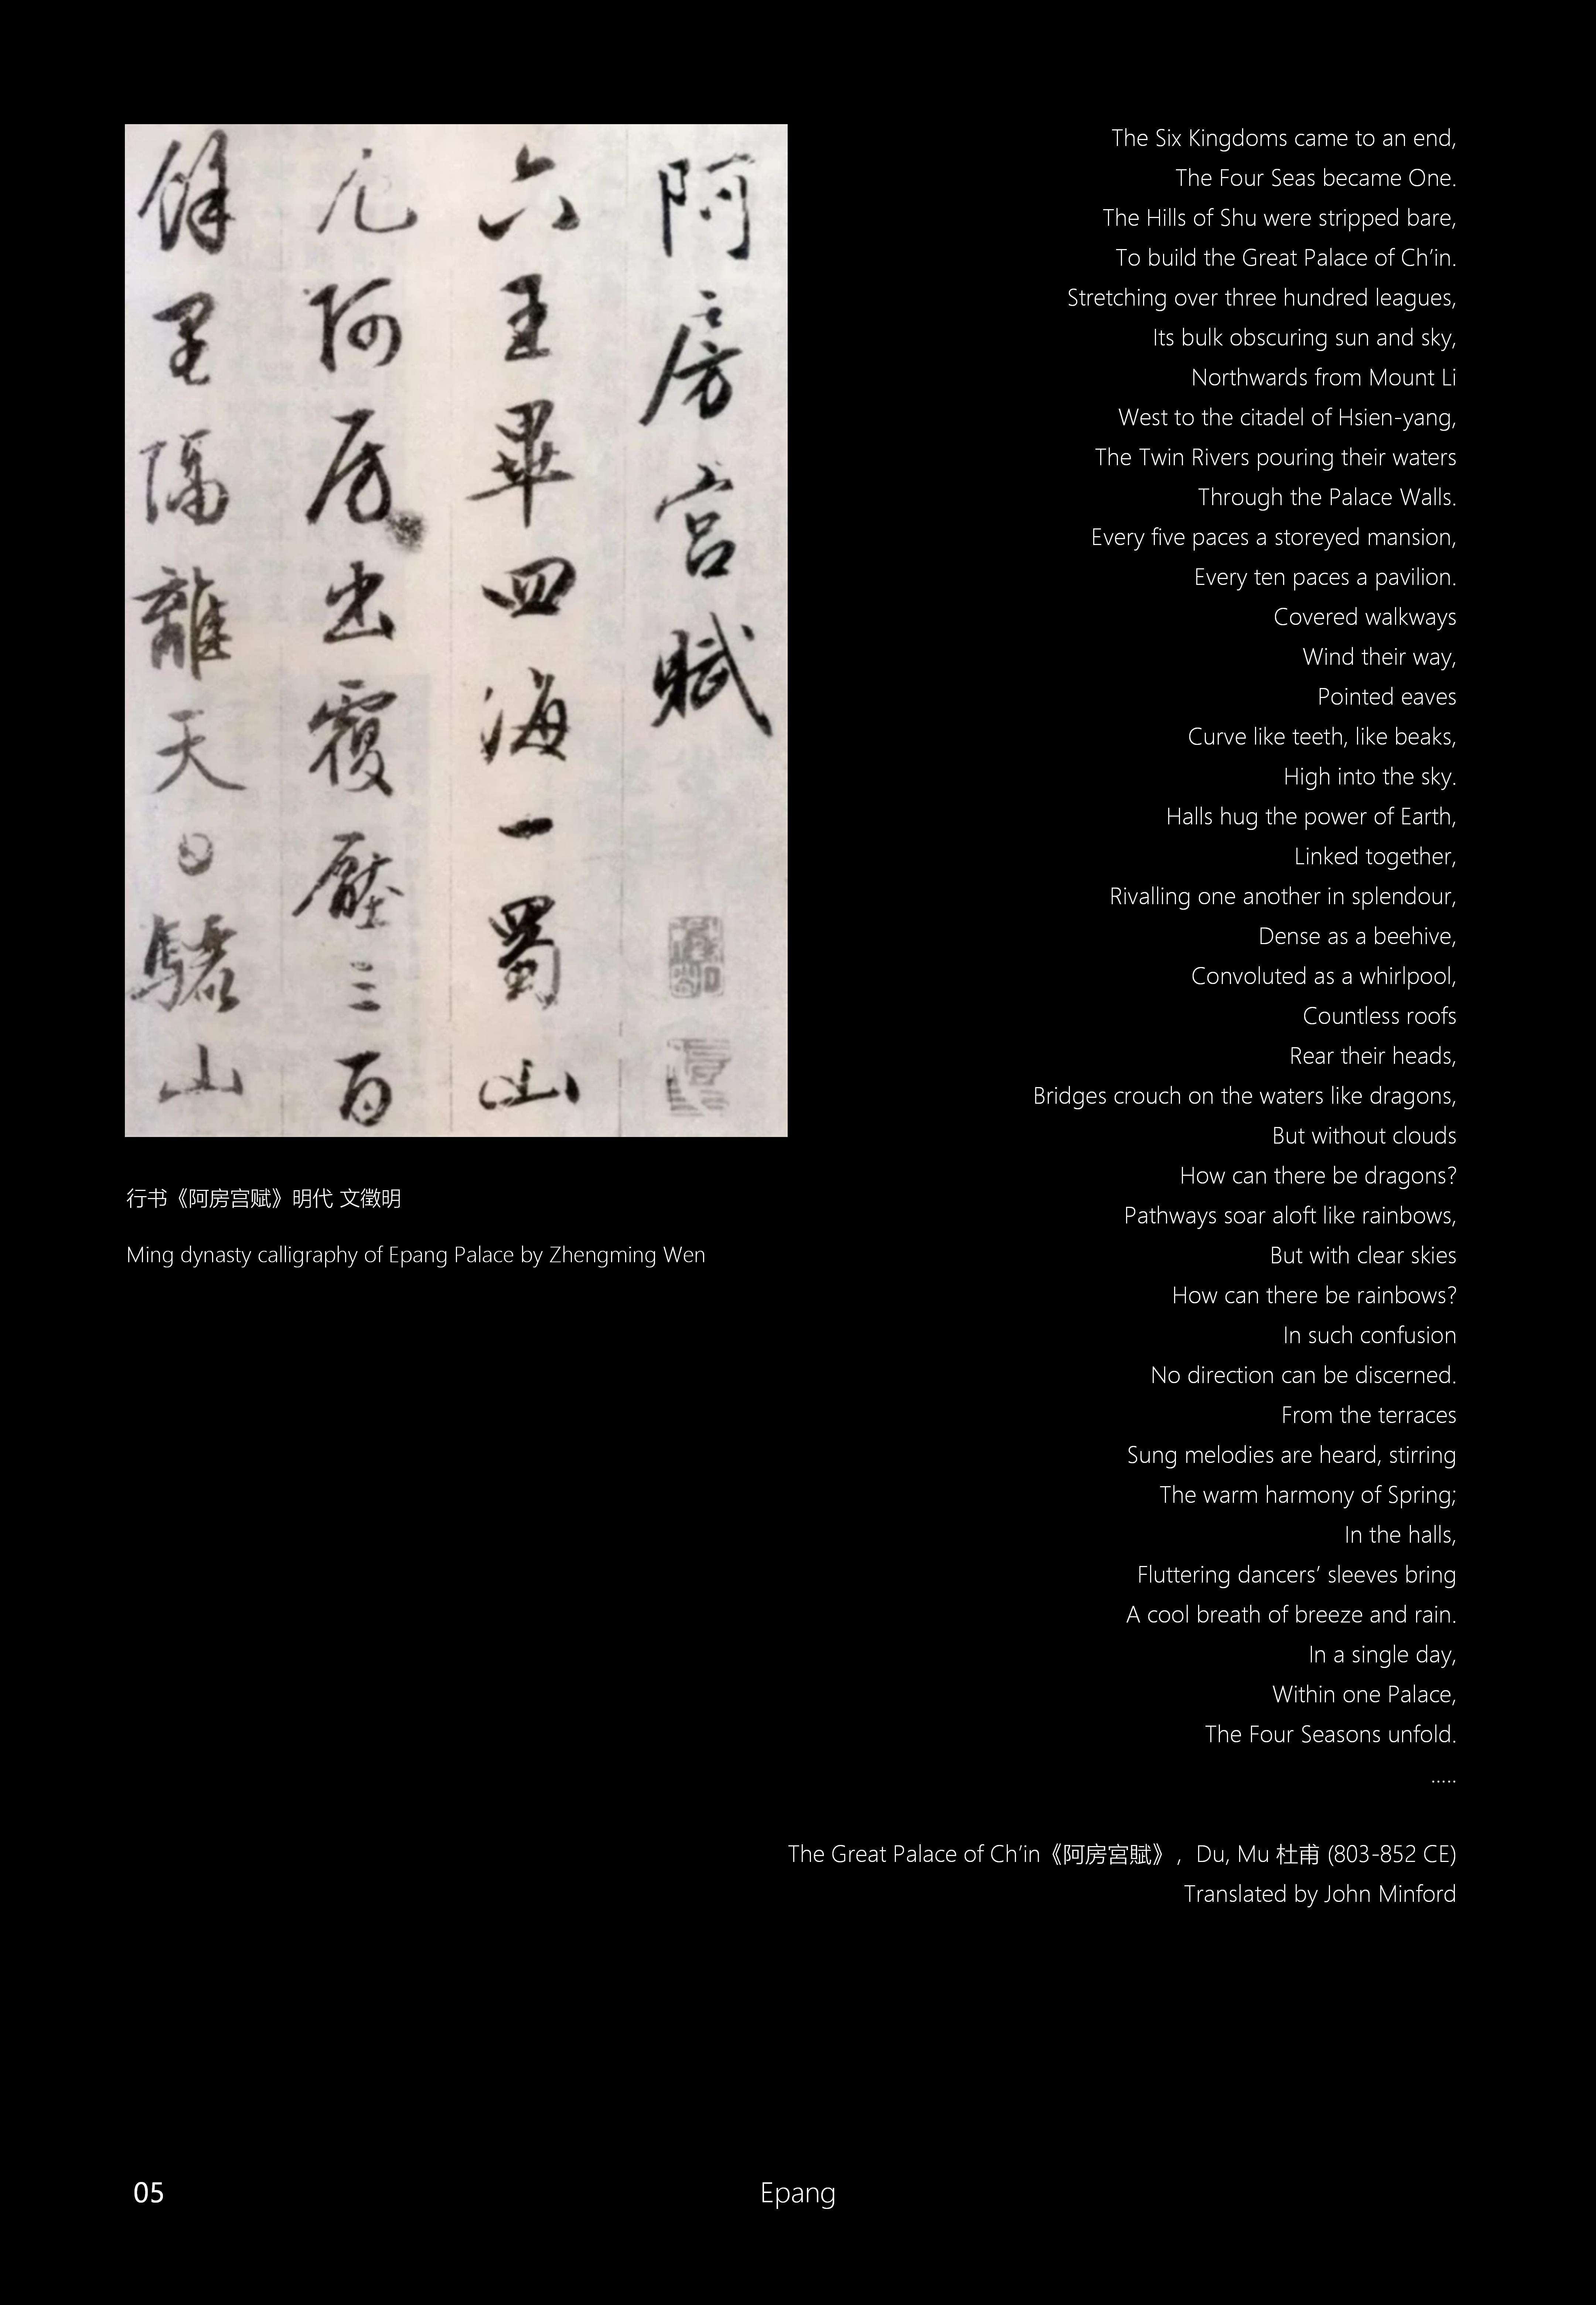 阿房宮賦
六王畢四海一蜀山
兀阿房出覆壓三百
餘里隔離天日驪山
行书《阿房宫赋》明代 文徵明
Ming dynasty calligraphy of Epang Palace by Zhengming Wen
The Six Kingdoms came to an end,
The Four Seas became One.
The Hills of Shu were stripped bare,
To build the Great Palace of Ch’in.
Stretching over three hundred leagues,
Its bulk obscuring sun and sky,
Northwards from Mount Li
West to the citadel of Hsien-yang,
The Twin Rivers pouring their waters
Through the Palace Walls.
Every five paces a storeyed mansion,
Every ten paces a pavilion.
Covered walkways
Wind their way,
Pointed eaves
Curve like teeth, like beaks,
High into the sky.
Halls hug the power of Earth,
Linked together,
Rivalling one another in splendour,
Dense as a beehive,
Convoluted as a whirlpool,
Countless roofs
Rear their heads,
Bridges crouch on the waters like dragons,
But without clouds
How can there be dragons?
Pathways soar aloft like rainbows,
But with clear skies
How can there be rainbows?
In such confusion
No direction can be discerned.
From the terraces
Sung melodies are heard, stirring
The warm harmony of Spring;
In the halls,
Fluttering dancers’ sleeves bring
A cool breath of breeze and rain.
In a single day,
Within one Palace,
The Four Seasons unfold.
.....
The Great Palace of Ch’in《阿房宮賦》, Du, Mu 杜甫 (803-852 CE)
Translated by John Minford
05
Epang